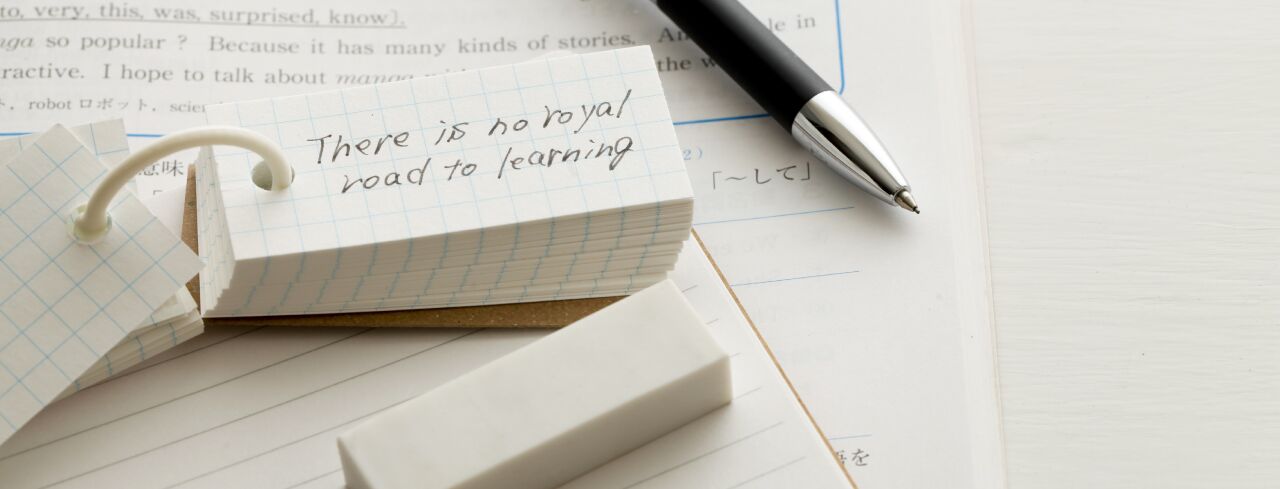 to, very, this, was, surprised, know).
nga so popular ? Because it has many kinds of stories. An le in
ractive. I hope to talk about manga the w
ト, robot ロボット, scien
There is no royal
road to learning
意味
2)
「～して」
を